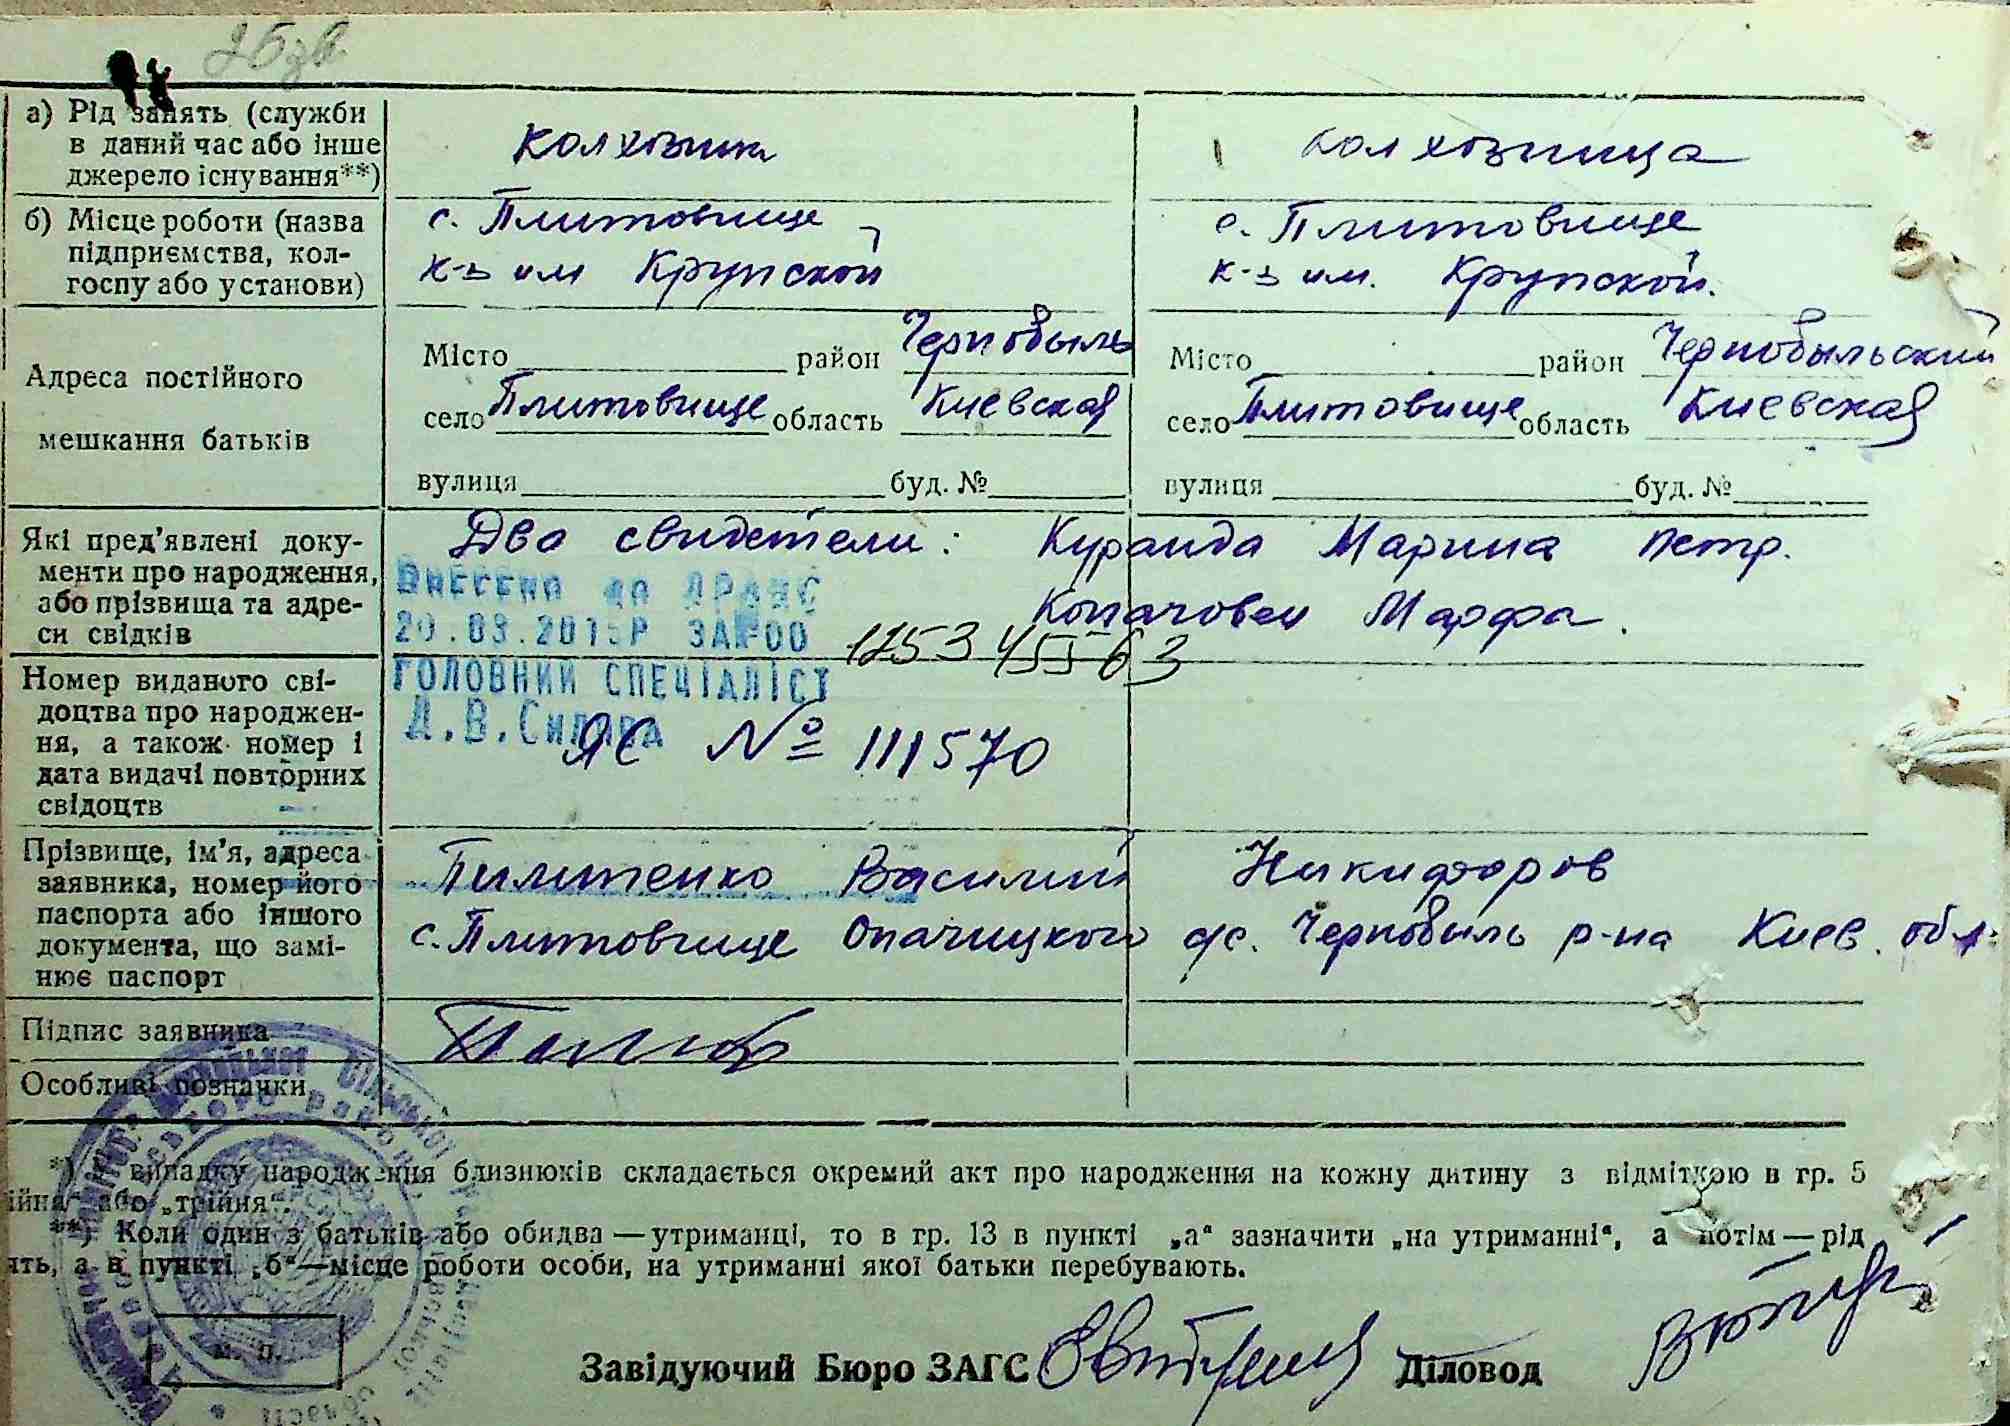 25зв
а) Рід занять (служби в даний час або інше джерело існування**)
колхозник
колхозница
б) Місце роботи (назва підприємства, колгоспу або установи)
с. Плитовище
к-з им Крупской
с. Плитовище
к-з им. Крупской.
Адреса постійного мешкання батьків
Місто район Чернобыль
село Плитовище область Киевская
вулиця буд. №
Місто район Чернобыльский
село Плитовище область Киевская
вулиця буд. №
Які пред’явлені документи про народження, або прізвища та адреси свідків
Два свидетели: Куранда Марина Петр.
Марфа.
ВНЕСЕНО ДО ДРАЦС
20.03.2015Р ЗА№00 125345563
ГОЛОВНИЙ СПЕЦІАЛІСТ
Номер виданого свідоцтва про народження, а також номер і дата видачі повторних свідоцтв
ЯС № 111570
Прізвище, ім’я, адреса заявника, номер його паспорта або іншого документа, що замінює паспорт
Василий Никифоров
с. Плитовище Опачицкого с/с. Чернобыль р-на Киев. обл.
Підпис заявника
Особливі позначки
*) випадку народження близнюків складається окремий акт про народження на кожну дитину з відміткою в гр. 5
ійна“ або „трійня“.
**) Коли один з батьків або обидва — утриманці, то в гр. 13 в пункті „а“ зазначити „на утриманні“, а потім — рід
ять, а в пункті „б“ — місце роботи особи, на утриманні якої батьки перебувають.
м. п.
Завідуючий Бюро ЗАГС Діловод